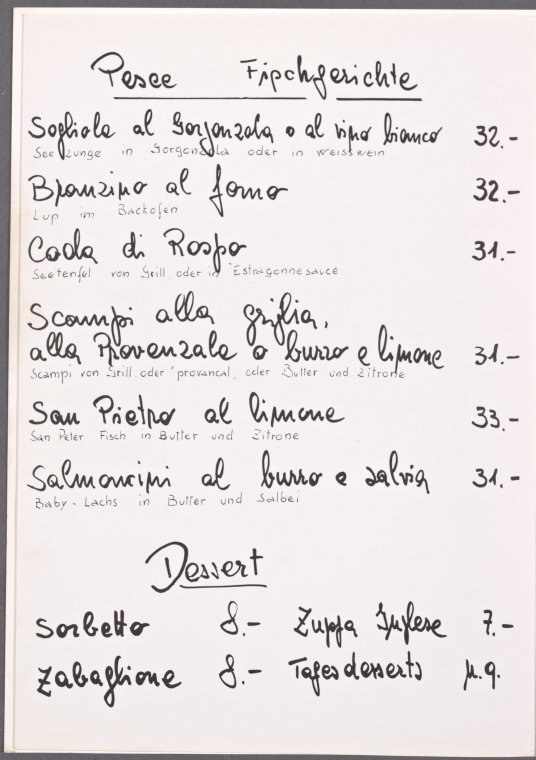 Pesce Fischgerichte
Sogliola al Gorgonzola o al vino bianco 32.-
Seezunge in Gorgonzola oder in Weisswein
Branzino al forno 32.-
Lup im Backofen
Coda di Rospo 31.-
Seeteufel von Grill oder in Estragonnesauce
Scampi alla griglia,
alla Provenzale o burro e limone 31.-
Scampi von Grill oder "provancal" oder Butter und Zitrone
San Pietro al limone 33.-
San Peter Fisch in Butter und Zitrone
Salmoncini al burro e salvia 31.-
Baby-Lachs in Butter und Salbei
Dessert
Sorbetto 8.- Zuppa Inglese 7.-
Zabaglione 8.- Tagesdesserts p.q.